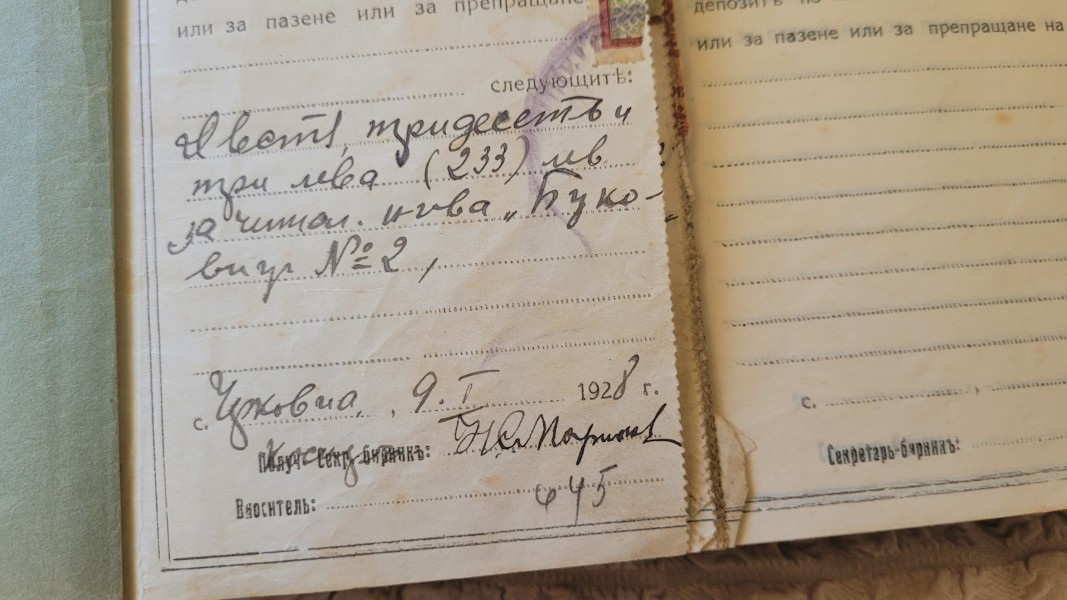 или за пазене или за препращане
следующитѣ:
Двестѣ, тридесеть и
три лева (233) лв
за читал. н-ва „Буко-
виц № 2,
с. Чуковца, 9. I 1928 г.
Получ. Секр.-бирникъ:
Вноситель: 645
депозитъ по
или за пазене или за препращане на
с. ,
Секретарь-бирникъ: